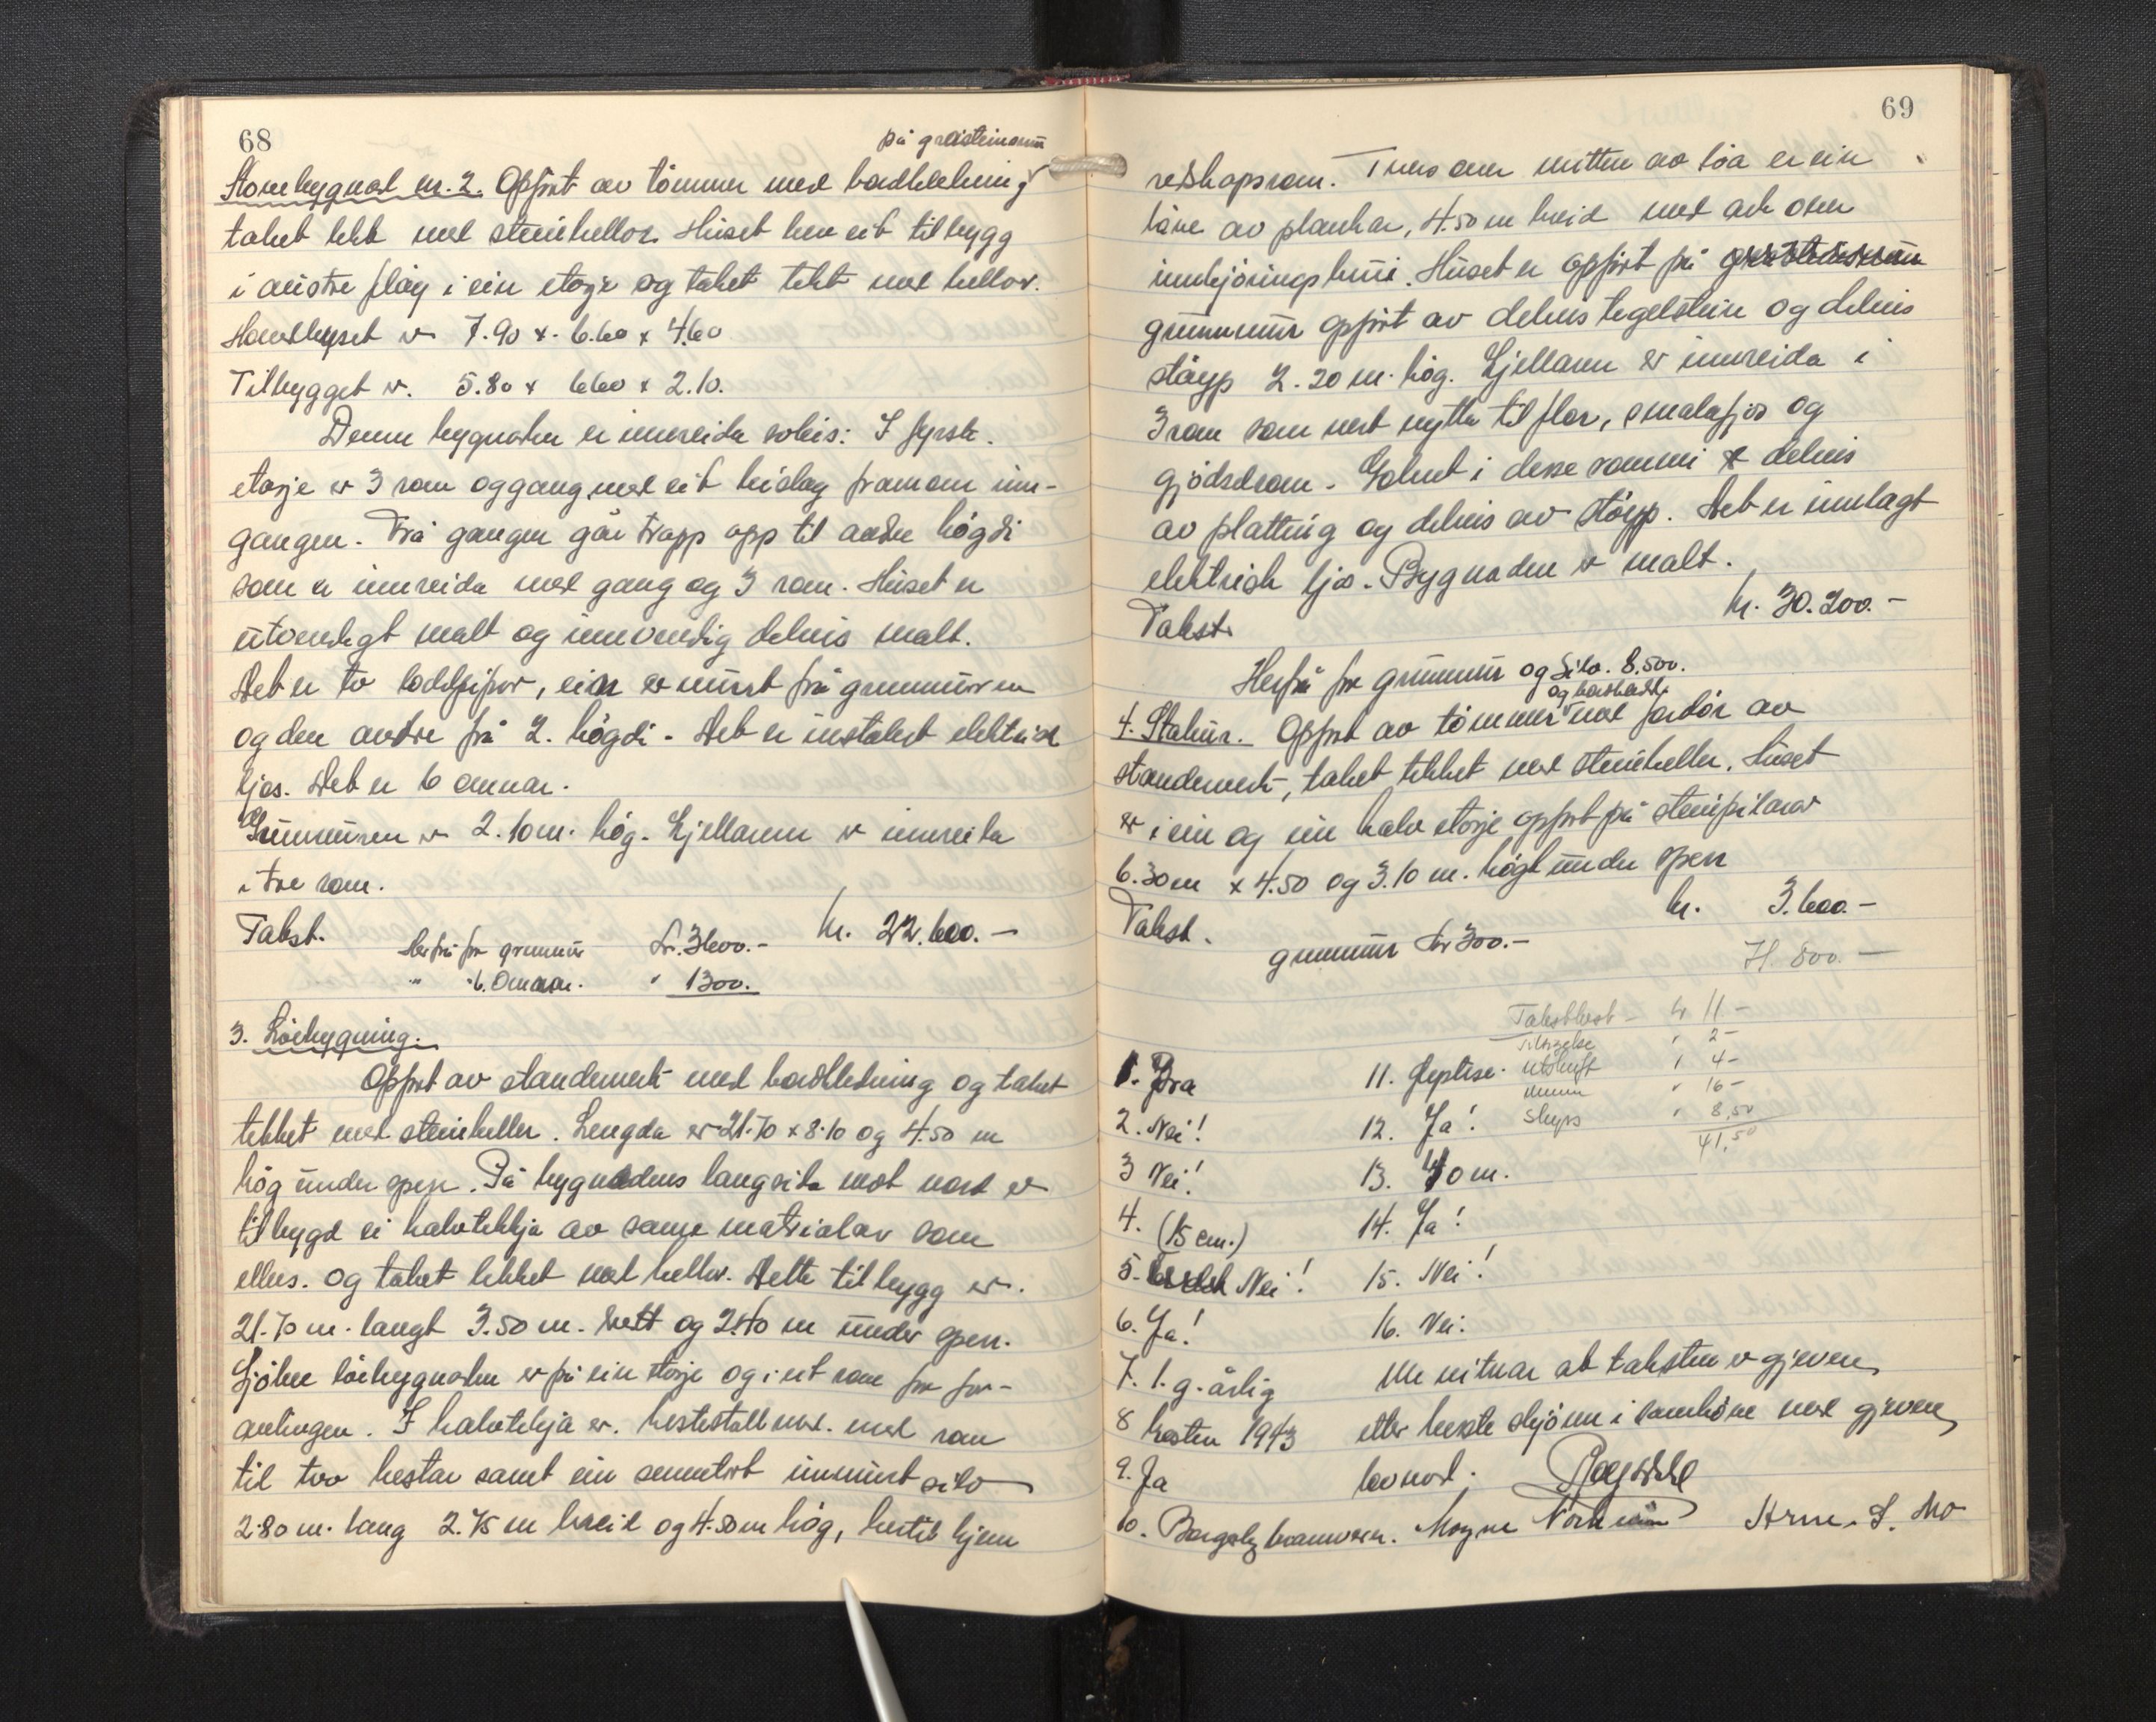 68
på gråsteinsmur
Stovebygnad nr. 2. Oppført av tømmer med bordkledning
taket tekt med steinheller. Huset har eit tilbygg
i austre fløy i ein etasje og taket tekt med hellor.
Hovedhuset er 7.90 x 6.60 x 4.60
Tilbygget er 5.80 x 6.60 x 2.10.
Denne bygnaden er innreida soleis: I fyrste
etasje er 3 rom og gang med eit bislag framom inn-
gangen. Frå gangen går trapp opp til andre høgdi
som er innreida med gang og 3 rom. Huset er
utvendigt malt og innvendig delvis malt.
Det er to loddpipor, ein er murt frå grunnmuren
og den andre frå 2. høgdi. Det er instalert elektrisk
ljos. Det er 6 omnar.
Grunnmuren er 2.10 m. høg. Kjellaren er innreida
i tre rom.
Takst. kr. 22.600.-
Herfrå for grunnmur kr. 3600.-
" " 6. Omnar. " 1300.
3. Løebygning.
Oppført av standerverk med bordkledning og taket
tekket med steinheller. Lengda er 21.70 x 8.10 og 4.50 m
høg under open. På bygnadens langside mot nord er
tilbygd ei halvtekkja av same materialar som
elles. og taket tekket med hellor. Dette tilbygg er
21.70 m. langt 3.50 m. bredt og 2.40 m under open.
Sjølve løebygnaden er på ein etasje og i eit rom for for-
anlingen. I halvtekja er hestestall med rom
til tvo hestar samt ein sementert innmurt silo
2.80 m. lang 2.75 m breid og 4.50 m høg, hertil kjem
69
reiskapsrom. Tvers over mitten av løa er ein
låve av plankar, 4.50 m breid med ark over
innkjøringsbrui. Huset er oppført på
grunnmur oppført av delvis tegelstein og delvis
støyp 2.20 m. høg. Kjellaren er innreida i
3 rom som vert nytta til flor, smalafjos og
gjødselrom. Golvet i desse rommi er delvis
av platting og delvis av støyp. Det er innlagt
elektrisk ljos. Bygnaden er malt.
Takst. kr. 30.200.-
Herfrå for grunnmur og Silo. 8.500.
og bordkledd
4. Stabur. Oppført av tømmer med fordør av
standerverk, taket tekket med steinheller. Huset
er i ein og ein halv etasje oppført på steinpilarar
6.30 m x 4.50 og 3.10 m. høgt under open
Takst. kr. 3.600.-
grunnmur kr 300.-
H. 800.-
Takstkost - kr 11.-
Tilvising " 2-
utskrift " 4-
" 16-
Skyss " 8,50
41,50
1. Bra
2. Nei!
3 Nei!
4. (15 cm.)
5. Nei!
6. Ja!
7. 1. g. årlig
8 hosten 1943
9. Ja
10.
11.
12. Ja!
13. 40 m.
14. Ja!
15. Nei!
16. Nei.
Me vitnar at taksten er gjeven
etter beste skjønn i samhøve med gjeven
lovnad.
Magne Arne S. Mo